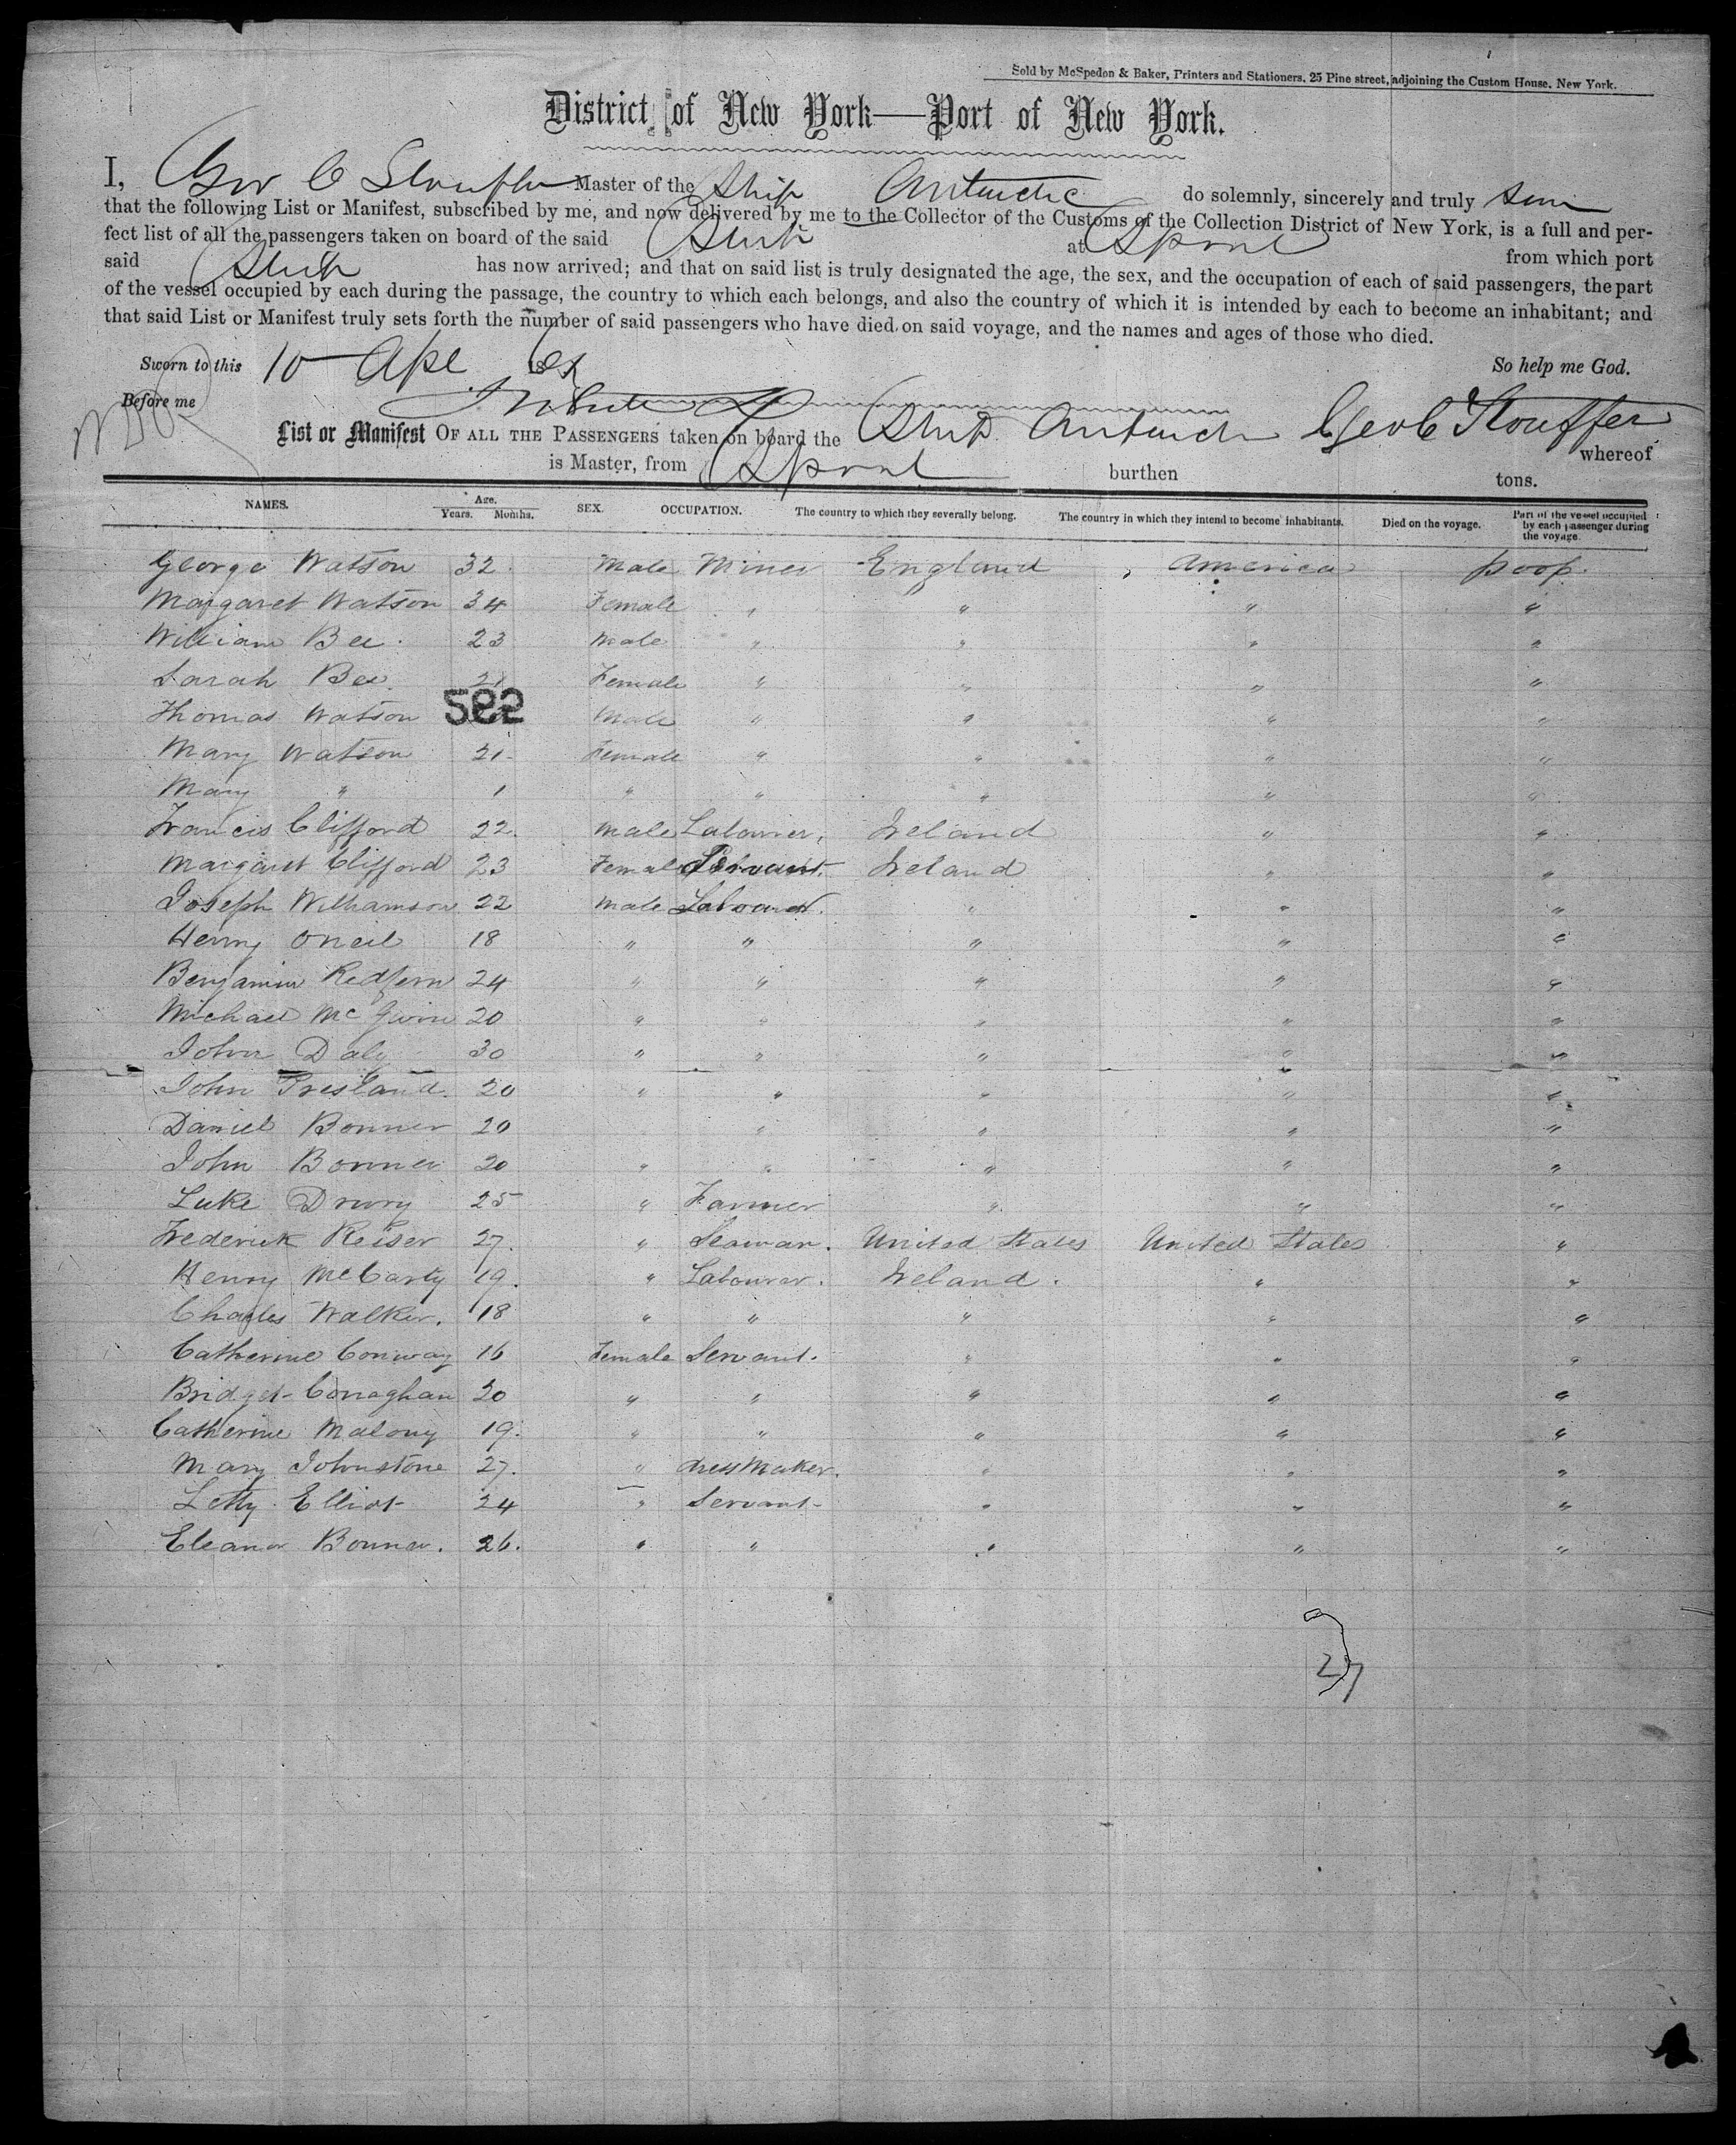 Sold by McSpedon & Baker, Printers and Stationers, 25 Pine street, adjoining the Custom House, New York.
District of New York—Port of New York.
I, Geo C Stouffer Master of the Ship Antarctic do solemnly, sincerely and truly
that the following List or Manifest, subscribed by me, and now delivered by me to the Collector of the Customs of the Collection District of New York, is a full and per-
fect list of all the passengers taken on board of the said Ship at Lpool from which port
said Ship has now arrived; and that on said list is truly designated the age, the sex, and the occupation of each of said passengers, the part
of the vessel occupied by each during the passage, the country to which each belongs, and also the country of which it is intended by each to become an inhabitant; and
that said List or Manifest truly sets forth the number of said passengers who have died on said voyage, and the names and ages of those who died.
Sworn to this 10 Apl 18 So help me God.
Before me
List or Manifest OF ALL THE PASSENGERS taken on board the Ship Antarctic Geo C Stouffer whereof
is Master, from Lpool burthen tons.
NAMES. Age. Years. Months. SEX. OCCUPATION. The country to which they severally belong. The country in which they intend to become inhabitants. Died on the voyage. Part of the vessel occupied by each passenger during the voyage.
George Watson 32 Male Miner England America poop.
Margaret Watson 34 Female " " " "
William Bee 23 Male " " " "
Sarah Bee 21 Female " " " "
582
Thomas Watson Male " " " "
Mary Watson 21 Female " " " "
Mary " 1 " " " " "
Francis Clifford 22 Male Labourer Ireland " "
Margaret Clifford 23 Female Servant Ireland " "
Joseph Williamson 22 Male Labourer " " "
Henry Oneil 18 " " " " "
Benjamin Redfern 24 " " " " "
Michael McGwire 20 " " " " "
John Daly 30 " " " " "
John Presland 20 " " " " "
Daniel Bonner 20 " " " "
John Bonner 20 " " " " "
Luke Drury 25 " Farmer " " "
Frederick Reiser 27 " Seaman. United States United States "
Henry McCarty 19. " Labourer. Ireland. " "
Charles Walker. 18 " " " " "
Catherine Conway 16 Female Servant. " " "
Bridget Conaghan 20 " " " " "
Catherine Malony 19. " " " " "
Mary Johnstone 27. " dressmaker. " " "
Letty Elliot 24 " Servant " " "
Eleanor Bonner. 26. " " " " "
27